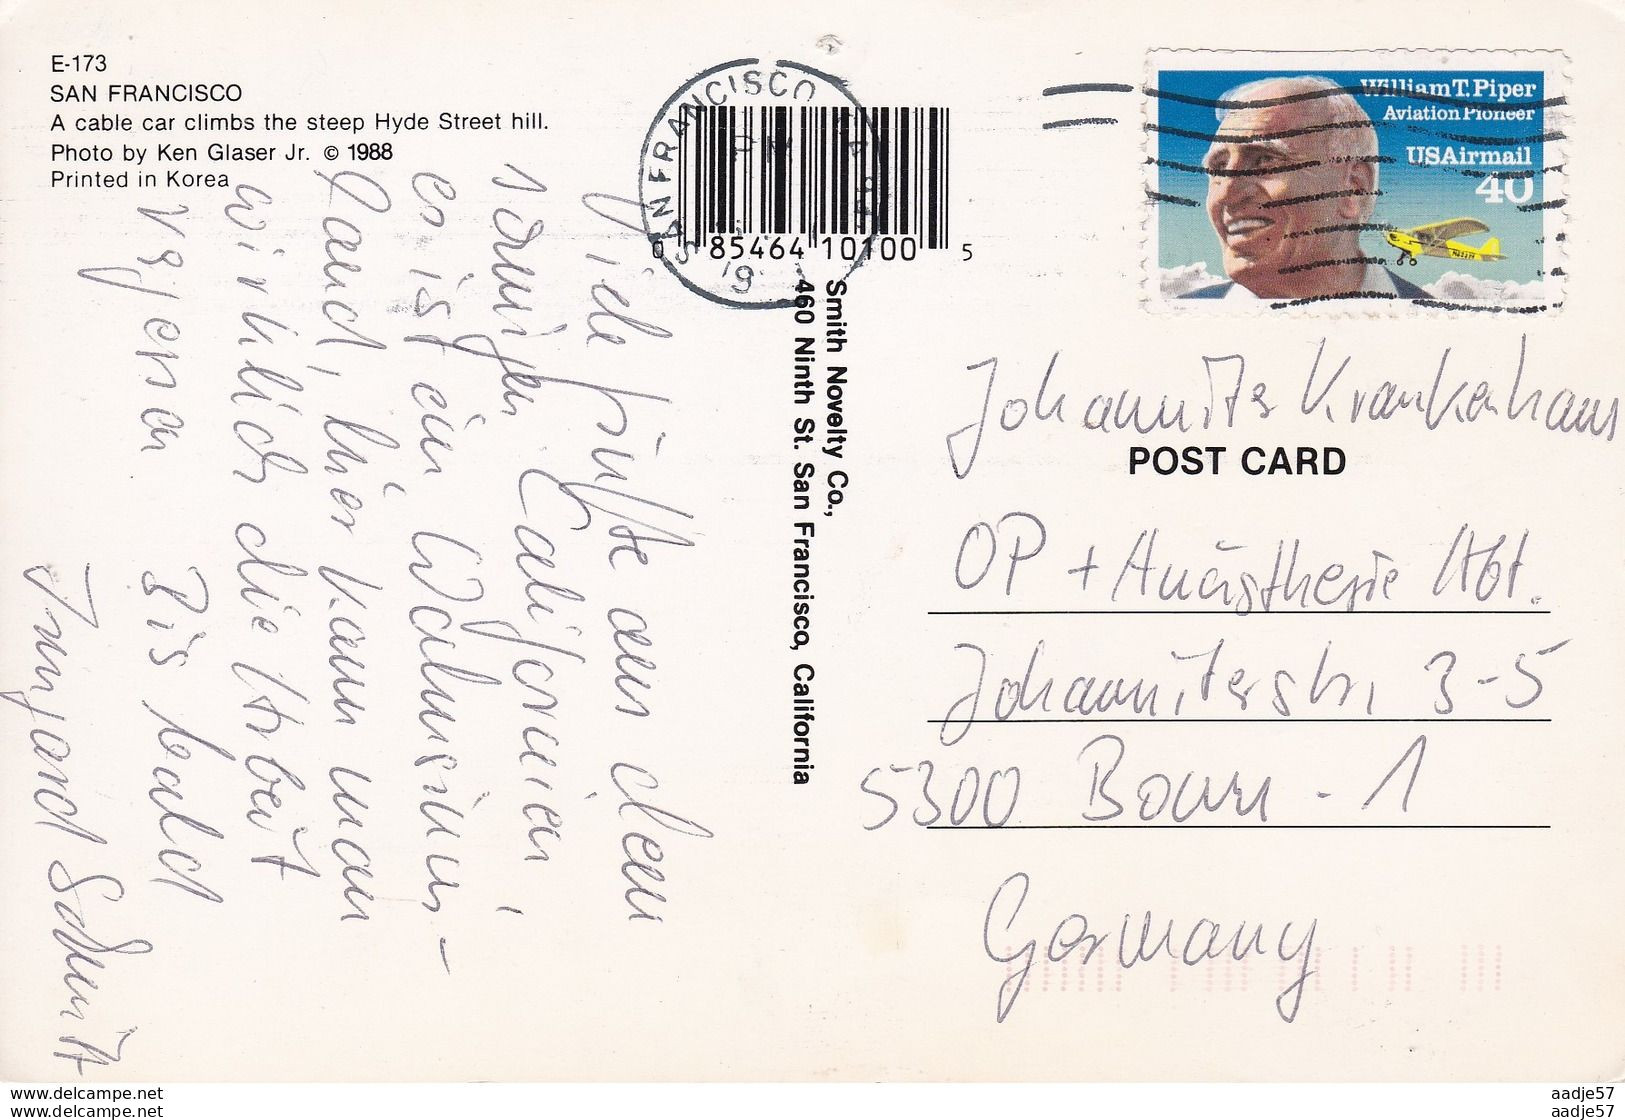 E-173
SAN FRANCISCO
A cable car climbs the steep Hyde Street hill.
Photo by Ken Glaser Jr. © 1988
Printed in Korea
Viele Grüße aus dem
sonnigen Californien,
es ist ein Wahnsinn-
Land, hier kann man
wirklich die Arbeit
vergessen
Bis bald
Irmgard Schmitt
SAN FRANCISCO
0 85464 10100 5
Smith Novelty Co.,
460 Ninth St. San Francisco, California
William T. Piper
Aviation Pioneer
USAirmail
40
Johanniter Krankenhaus
POST CARD
OP + Anästhesie Abt.
Johanniterstr. 3-5
5300 Bonn - 1
Germany
aadje57
aadje57
www.delcampe.net
www.delcampe.net